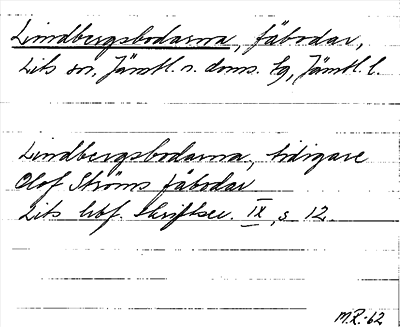 Lindbergsbodarna, fäbodar,
Lits sn, Jämtl. n. doms. tg, Jämtl. l.
Lindbergsbodarna, tidigare
Olof Ströms fäbodar
Lits hbf. Skriftser. IX, s 12.
M.R.-62